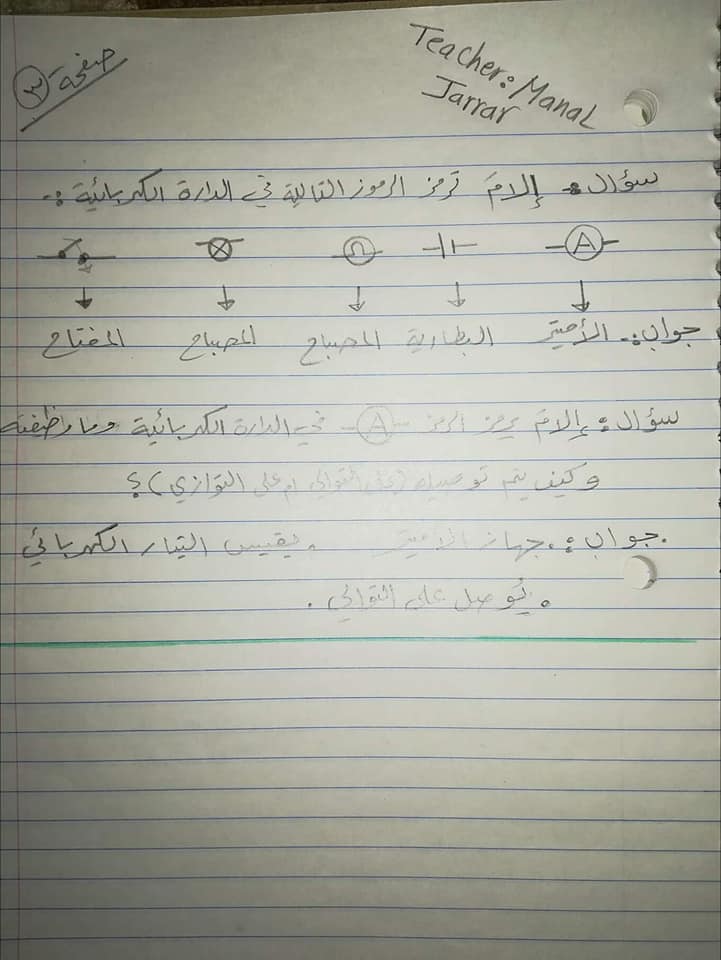 صفحة ٣
Teacher: Manal
Jarrar
سؤال: إلامَ ترمز الرموز التالية في الدارة الكهربائية :-
A
جواب:. الأميتر البطارية المصباح المصباح المفتاح
سؤال: إلامَ يرمز الرمز A في الدارة الكهربائية وما وظيفته
وكيف يتم توصيله (على التوالي ام على التوازي)؟
جواب:. جهاز الاميتر . يقيس التيار الكهربائي
. يُوصل على التوالي .